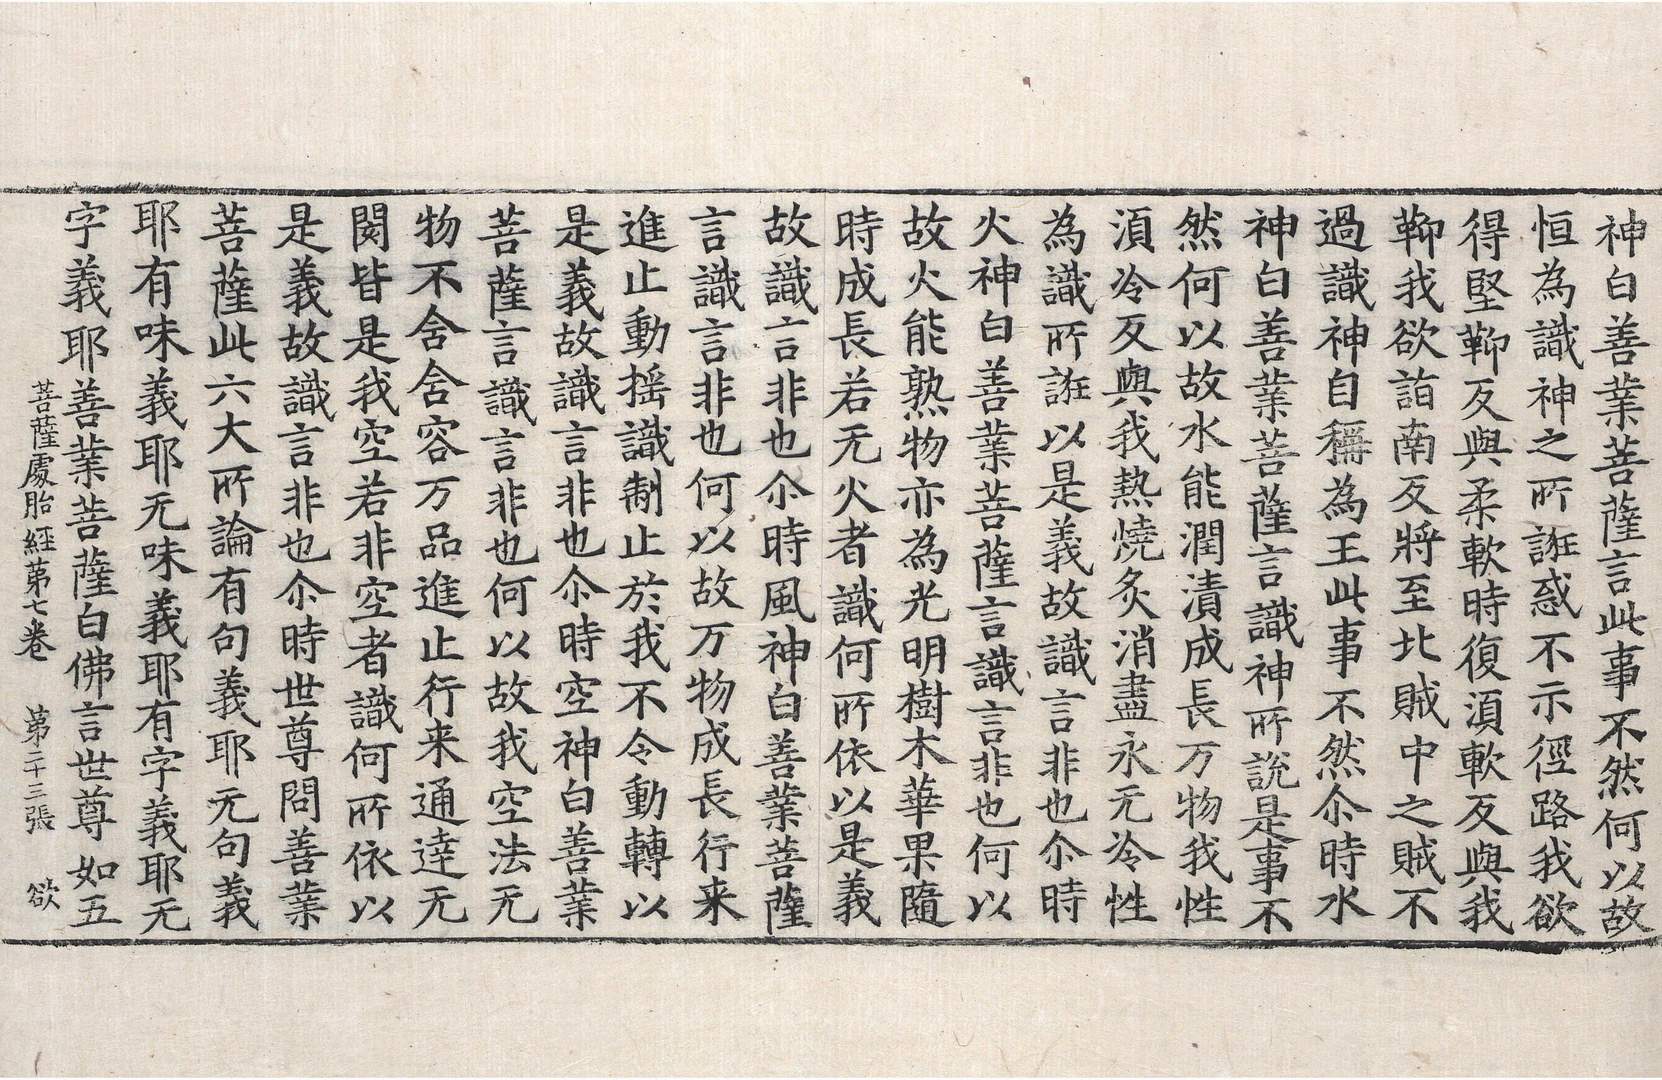 神白善業菩薩言此事不然何以故
恒為識神之所誑惑不示徑路我欲
得堅鞕反與柔軟時復湏軟反與我
鞕我欲詣南反將至北賊中之賊不
過識神自稱為王此事不然尒時水
神白善業菩薩言識神所說是事不
然何以故水能潤漬成長万物我性
湏冷反與我熱燒炙消盡永无冷性
為識所誑以是義故識言非也尒時
火神白善業菩薩言識言非也何以
故火能熟物亦為光明樹木華果隨
時成長若无火者識何所依以是義
故識言非也尒時風神白善業菩薩
言識言非也何以故万物成長行来
進止動揺識制止於我不令動轉以
是義故識言非也尒時空神白善業
菩薩言識言非也何以故我空法无
物不舍舍容万品進止行来通達无
閡皆是我空若非空者識何所依以
是義故識言非也尒時世尊問善業
菩薩此六大所論有句義耶无句義
耶有味義耶无味義耶有字義耶无
字義耶善業菩薩白佛言世尊如五
菩薩處胎經第七卷 第二十三張 欲